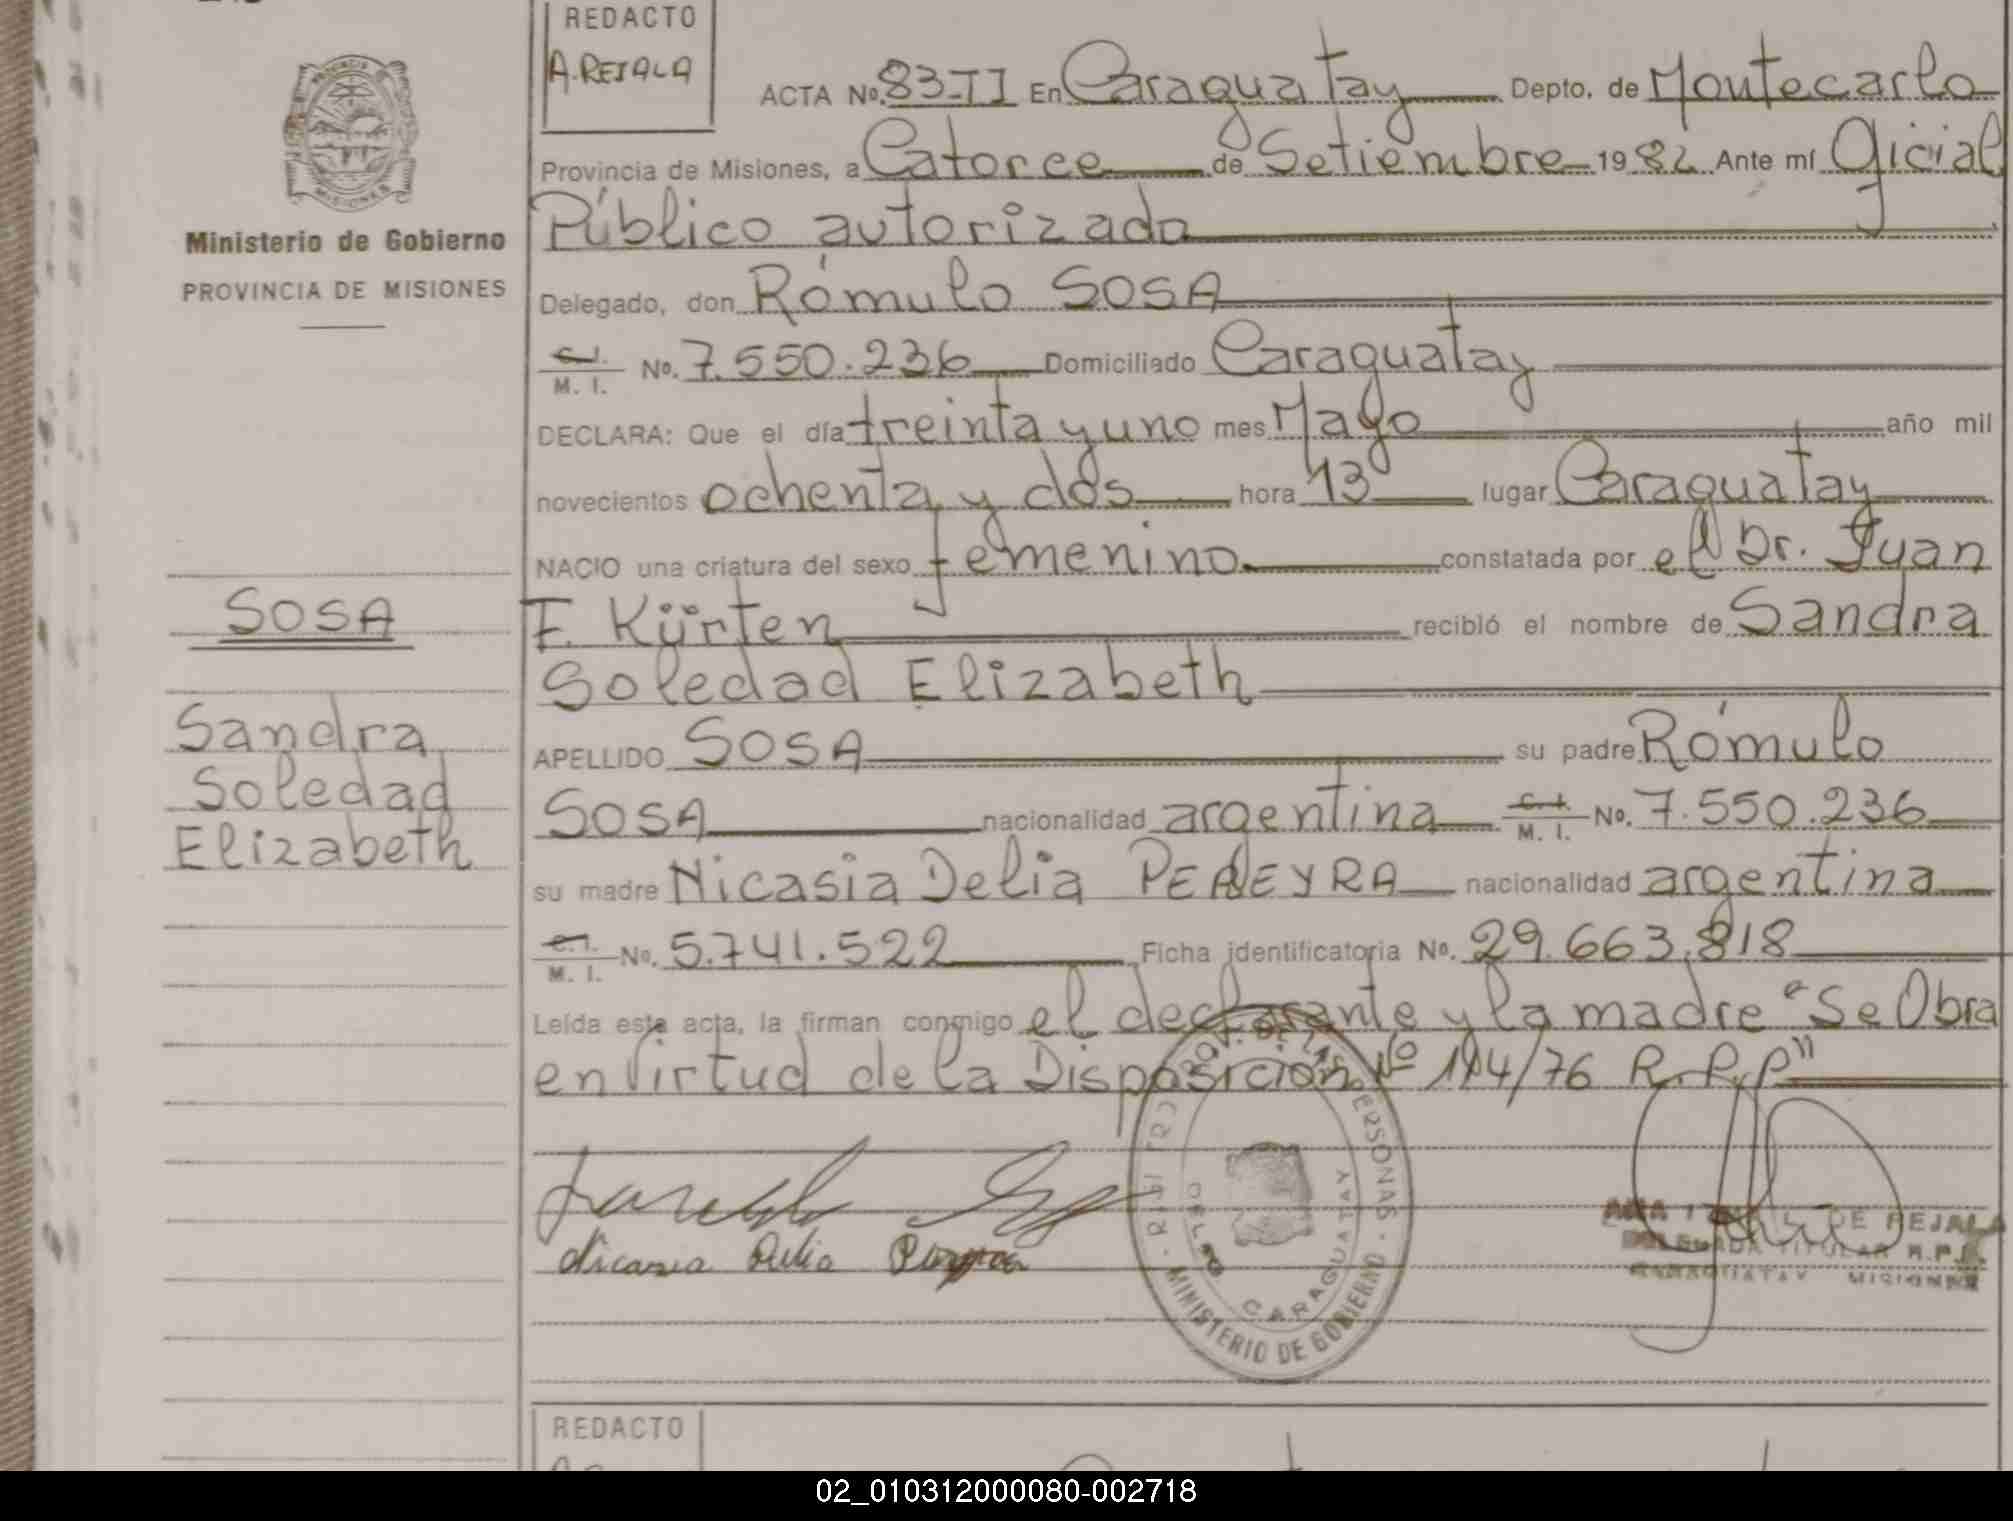 REDACTO
A. REJALA
ACTA No. 83-II En Caraguatay Depto. de Montecarlo
Provincia de Misiones, a Catorce de Setiembre 1982 Ante mí Oficial
Público autorizado
Delegado, don Rómulo SOSA
C. I. M. I. No. 7.550.236 Domiciliado Caraguatay
DECLARA: Que el día treinta y uno mes Mayo año mil
novecientos ochenta y dos hora 13 lugar Caraguatay
NACIO una criatura del sexo femenino constatada por el Dr. Juan
F. Kürten recibió el nombre de Sandra
Soledad Elizabeth
APELLIDO SOSA su padre Rómulo
SOSA nacionalidad argentina C. I. M. I. No. 7.550.236
su madre Nicasia Delia PEREYRA nacionalidad argentina
C. I. M. I. No. 5.741.522 Ficha identificatoria No. 29.663.818
Leída este acta, la firman conmigo el declarante y la madre "Se Obra
en Virtud de la Disposición Nº 114/76 R.P.P"
Nicasia Delia
MINISTERIO DE GOBIERNO
PERSONAS
CARAGUATAY
DE REJALA
DELEGADA TITULAR R.P.
CARAGUATAY MISIONES
PROVINCIA
MISIONES
Ministerio de Gobierno
PROVINCIA DE MISIONES
SOSA
Sandra
Soledad
Elizabeth
REDACTO
02_010312000080-002718